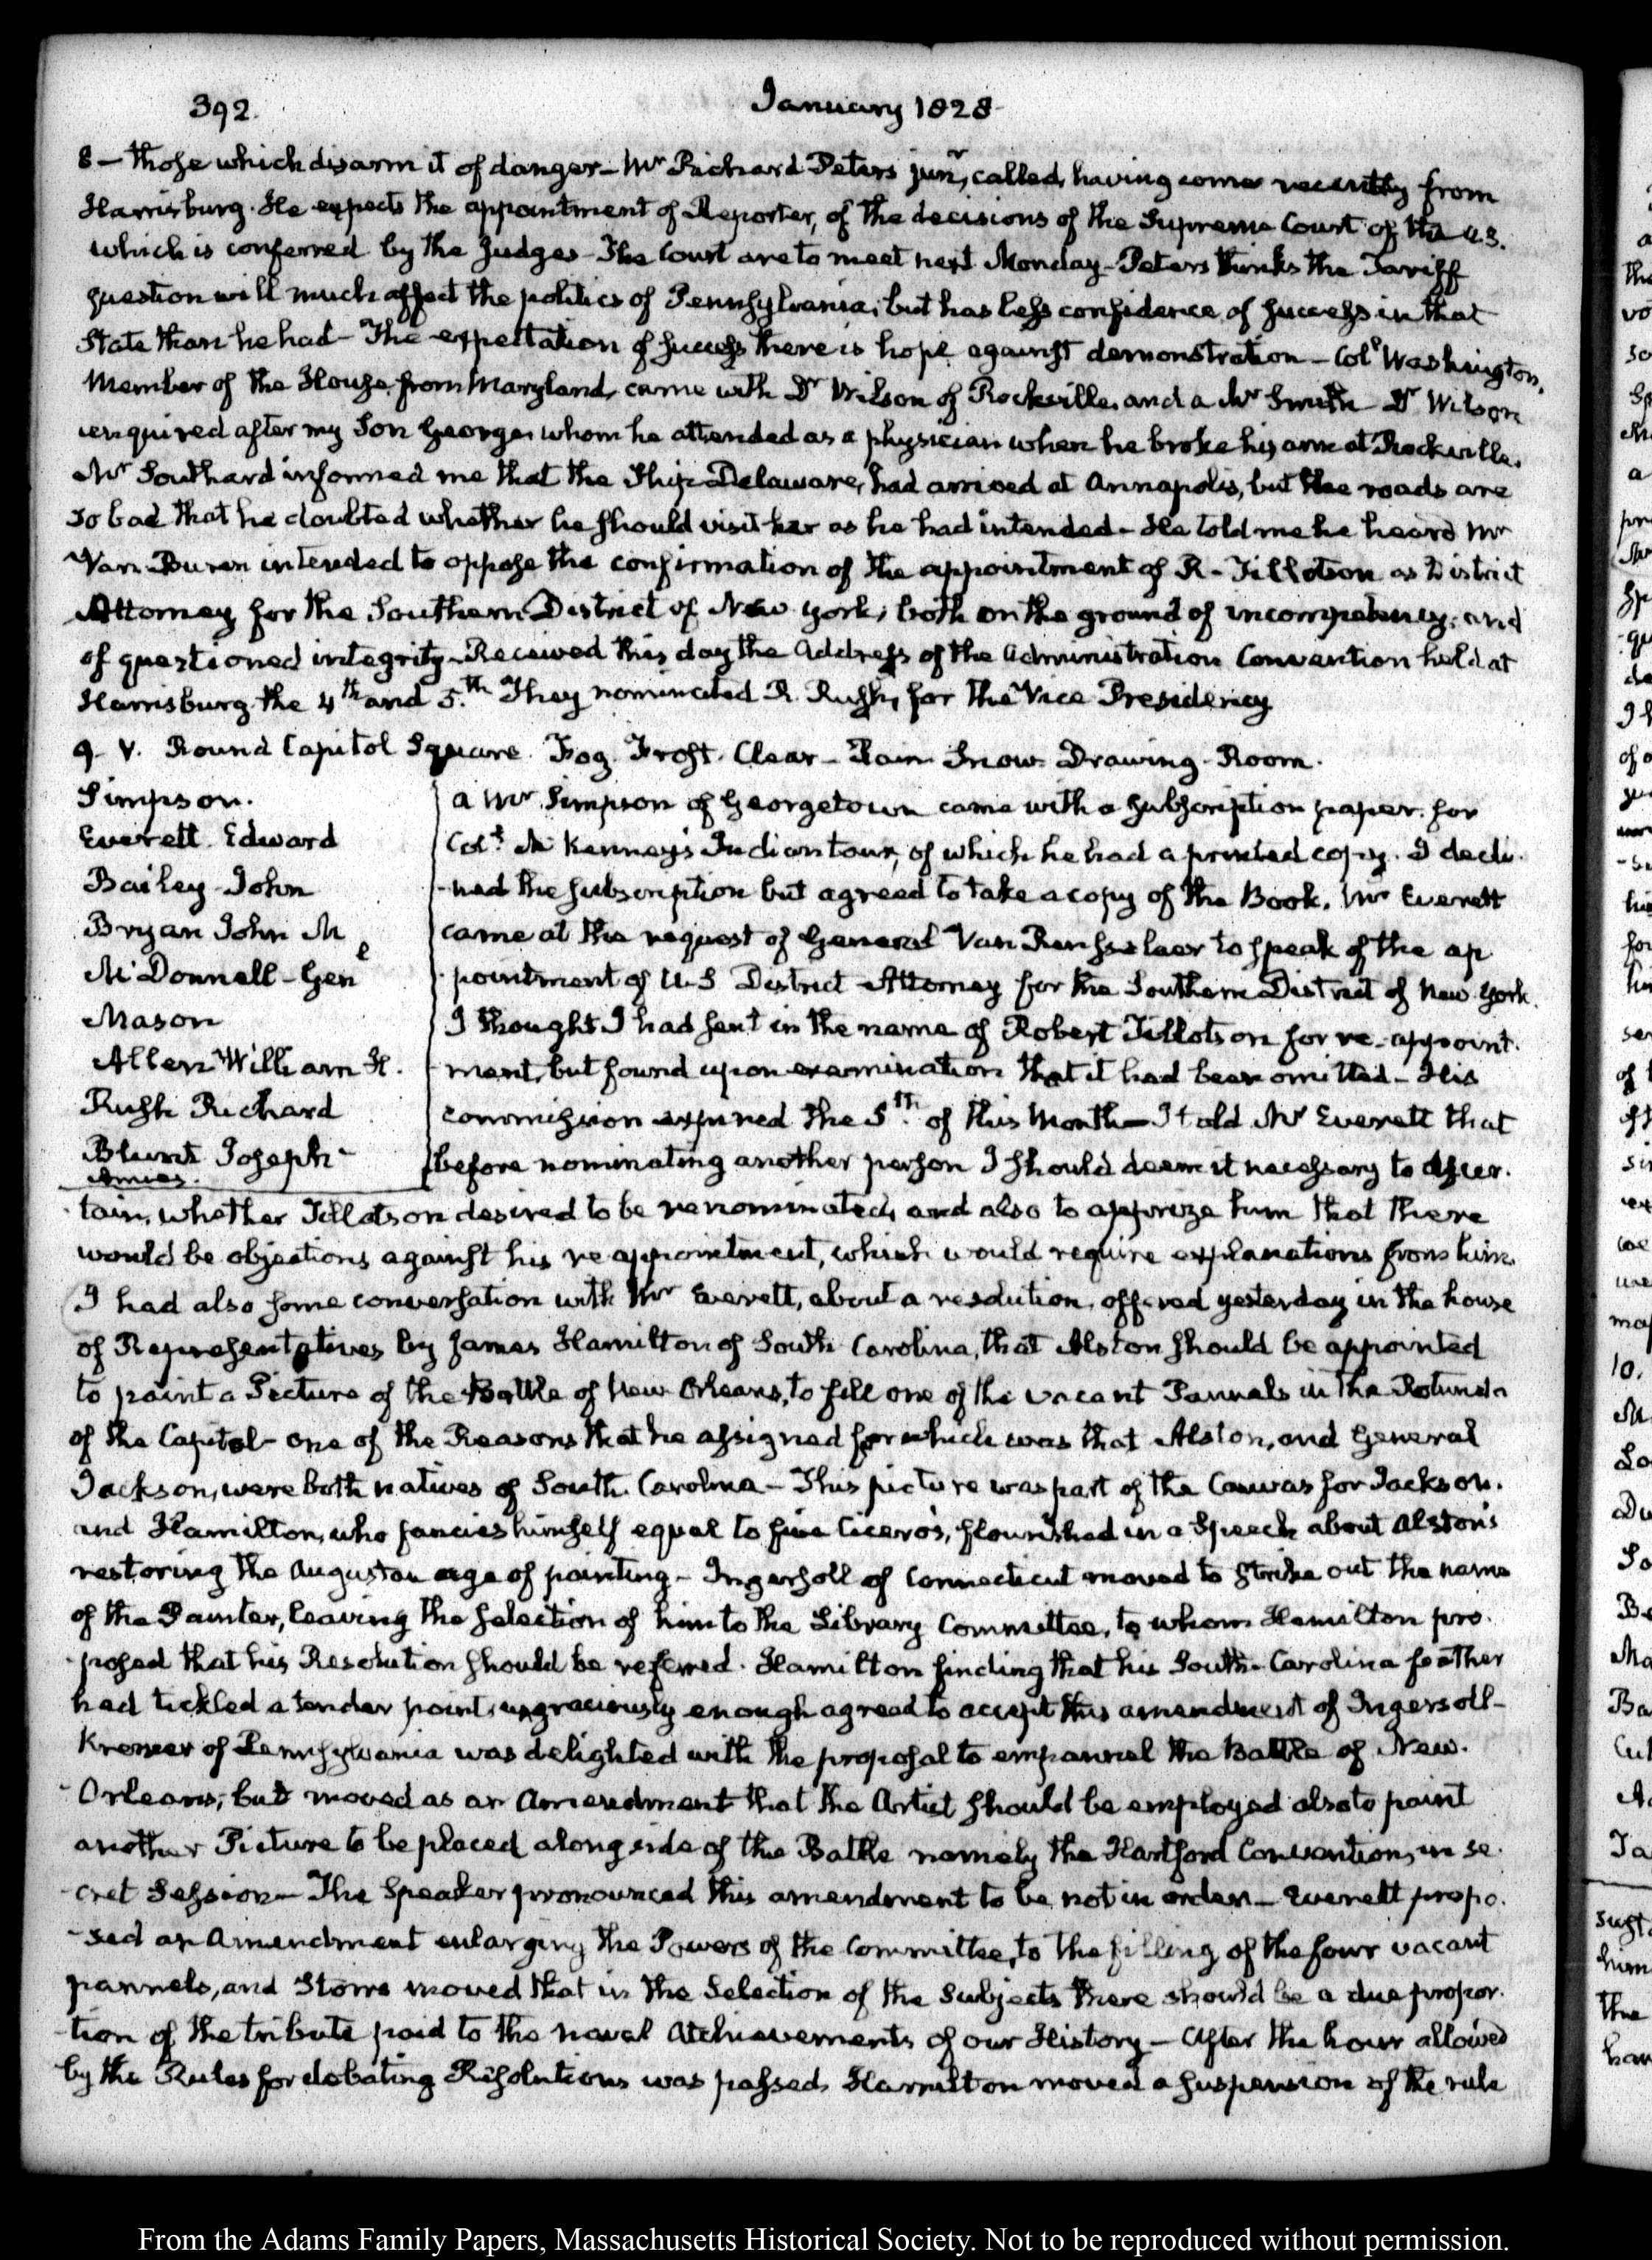 392.
January 1828
8 — those which disarm it of danger — Mr Richard Peters junr, called, having come recently from
Harrisburg. He expects the appointment of Reporter, of the decisions of the Supreme Court of the U.S.
which is conferred by the Judges — The Court are to meet next Monday — Peters thinks the Tariff
question will much affect the politics of Pennsylvania; but has less confidence of success in that
State than he had — The expectation of success there is hope against demonstration — Coll Washington,
Member of the House from Maryland, came with Dr Wilson of Rockville, and a Mr Smith — Dr Wilson
enquired after my Son George, whom he attended as a physician when he broke his arm at Rockville.
Mr Southard informed me that the Ship Delaware, had arrived at Annapolis, but the roads are
so bad that he doubted whether he should visit her as he had intended — He told me he heard Mr
Van Buren intended to oppose the confirmation of the appointment of R. Tillotson as District
Attorney for the Southern District of New York; both on the ground of incompetency, and
of questioned integrity — Received this day the Address of the Administration Convention held at
Harrisburg the 4th and 5.th They nominated R. Rush, for the Vice Presidency
9. V. Round Capitol Square. Fog. Frost. Clear — Rain Snow. Drawing-Room.
Simpson.
Everett. Edward
Bailey John
Bryan John M
McDonnell — Genl
Mason
Allen William H.
Rush Richard
Blunt Joseph
a Mr Simpson of Georgetown came with a subscription paper for
Coll McKenney's Indian tour, of which he had a printed copy. I decli-
-ned the subscription but agreed to take a copy of the Book. Mr Everett
came at the request of General Van Rensselaer to speak of the ap
-pointment of U.S. District Attorney for the Southern District of New York.
I thought I had sent in the name of Robert Tillotson for re-appoint-
ment, but found upon examination that it had been omitted — His
commission expired the 5th of this Month — I told Mr Everett that
before nominating another person I should deem it necessary to ascer-
-tain, whether Tillotson desired to be renominated, and also to apprize him that there
would be objections against his re appointment, which would require explanations from him.
I had also some conversation with Mr Everett, about a resolution, offered yesterday in the house
of Representatives by James Hamilton of South Carolina, that Alston should be appointed
to paint a Picture of the Battle of New Orleans, to fill one of the vacant Pannels in the Rotunda
of the Capitol — one of the Reasons that he assigned for which was that Alston, and General
Jackson, were both natives of South Carolina — This picture was part of the Canvas for Jackson.
and Hamilton, who fancies himself equal to five Cicero's, flourished in a Speech about Alston's
restoring the Augustan age of painting — Ingersoll of Connecticut moved to strike out the name
of the Painter, leaving the selection of him to the Library Committee, to whom Hamilton pro-
-posed that his Resolution should be referred. Hamilton finding that his South-Carolina feather
had tickled a tender point, ungraciously enough agreed to accept this amendment of Ingersoll —
Kremer of Pennsylvania was delighted with the proposal to empannel the Battle of New-
-Orleans; but moved as an Amendment that the Artist should be employed also to paint
another Picture to be placed along side of the Battle namely the Hartford Convention, in se-
-cret Session — The Speaker pronounced this amendment to be not in order — Everett propo-
-sed an Amendment enlarging the Powers of the Committee, to the filling of the four vacant
pannels, and Storrs moved that in the Selection of the Subjects there should be a due propor-
-tion of the tribute paid to the naval Atchievements of our History — After the hour allowed
by the Rules for debating Resolutions was passed, Hamilton moved a suspension of the rule
From the Adams Family Papers, Massachusetts Historical Society. Not to be reproduced without permission.